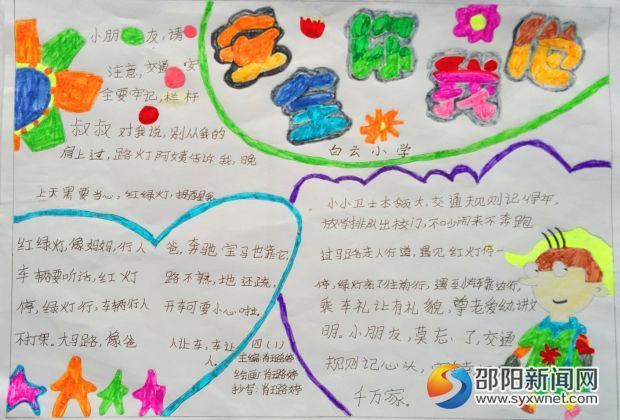 安全你我他
白云小学
小朋友,请
注意,交通安
全要牢记,栏杆
叔叔对我说,别从我的
肩上过,路灯阿姨告诉我,晚
上天黑要当心,红绿灯,提醒我
红绿灯,像妈妈,行人
车辆要听话,红灯
停,绿灯行,车辆行人
不打架。大马路,像爸
爸,奔驰宝马也靠它,
路不熟,地还疏,
开车可要小心啦。
人让车,车让
人。
四(1)
主编
绘画
抄写
小小卫士本领大,交通规则记得牢。
放学排队出校门,不吵闹来不奔跑
过马路走人行道,遇见红灯停一
停,绿灯亮了往前行,遇到汽车靠边行,
乘车礼让有礼貌,尊老爱幼讲文
明。小朋友,莫忘了,交通
规则记心头,
千万家。
邵阳新闻网
www.syxwnet.com